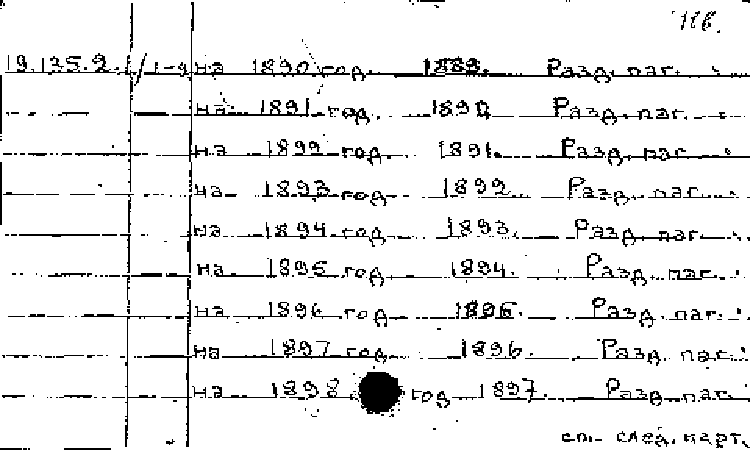 116.
19.135.2.1/1-9 на 1890 год. 1889. Разд. паг.
на 1891 год. 1890 Разд. паг.
на 1892 год. 1891. Разд. паг.
на 1893 год 1892 Разд. паг.
на 1894 год 1893. Разд. паг.
на 1895 год 1894. Разд. паг.
на 1896 год 1895. Разд. паг.
на 1897 год 1896. Разд. паг.
на 1898 год 1897. Разд. паг.
см. след. карт.